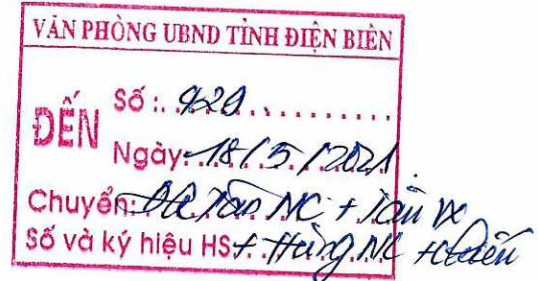 VĂN PHÒNG UBND TỈNH ĐIỆN BIÊN
ĐẾN
Số: 929
Ngày: 18/5/2021
Chuyển: NC + VX
Số và ký hiệu HS: + Hùng NC +